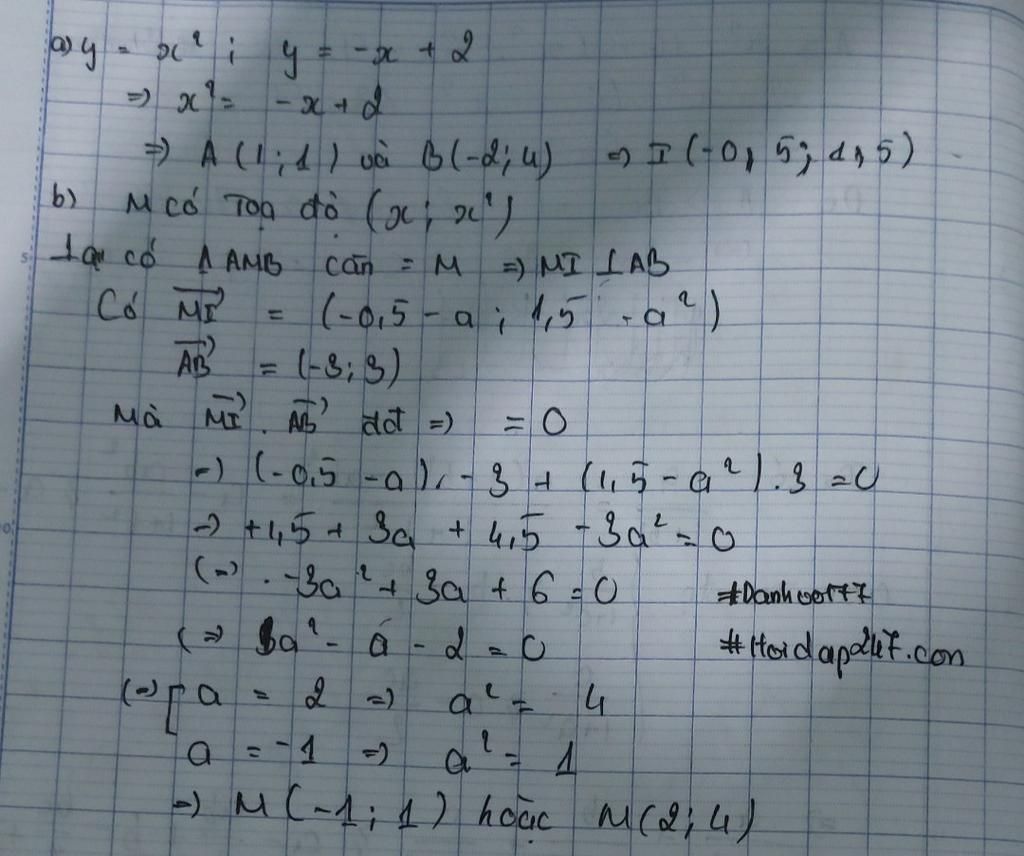 a) y = x² ; y = -x + 2
=> x² = -x + 2
=> A (1 ; 1) và B (-2; 4) => I (-0, 5; 1, 5)
b) M có Toạ độ (x ; x²)
Ta có Δ AMB cân = M => MI ⊥ AB
Có MI→ = (-0,5 - a ; 1,5 - a²)
AB→ = (-3; 3)
Mà MI→ . AB→ => = 0
=> (-0,5 - a) . -3 + (1,5 - a²) . 3 = 0
=> +1,5 + 3a + 4,5 - 3a² = 0
(=> . -3a² + 3a + 6 = 0 #Danhoo1777
(=> a² - a - 2 = 0 #Hoidap247.con
(=> [ a = 2 => a² = 4
a = -1 => a² = 1
=> M (-1 ; 1) hoặc M (2; 4)